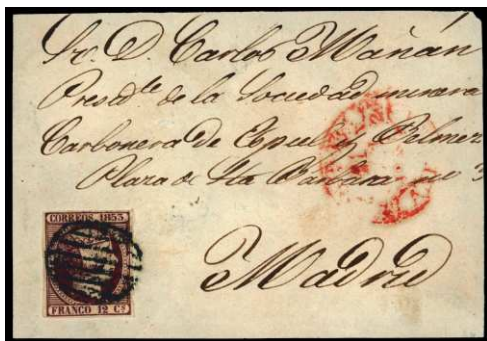 Sr. D. Carlos Mañán
Presidte de la Sociedad minera
Carbonera de Espiel y Belmez
Plaza de Sta Barbara no 3
Madrid
CORREOS 1853
FRANCO 12 Cs